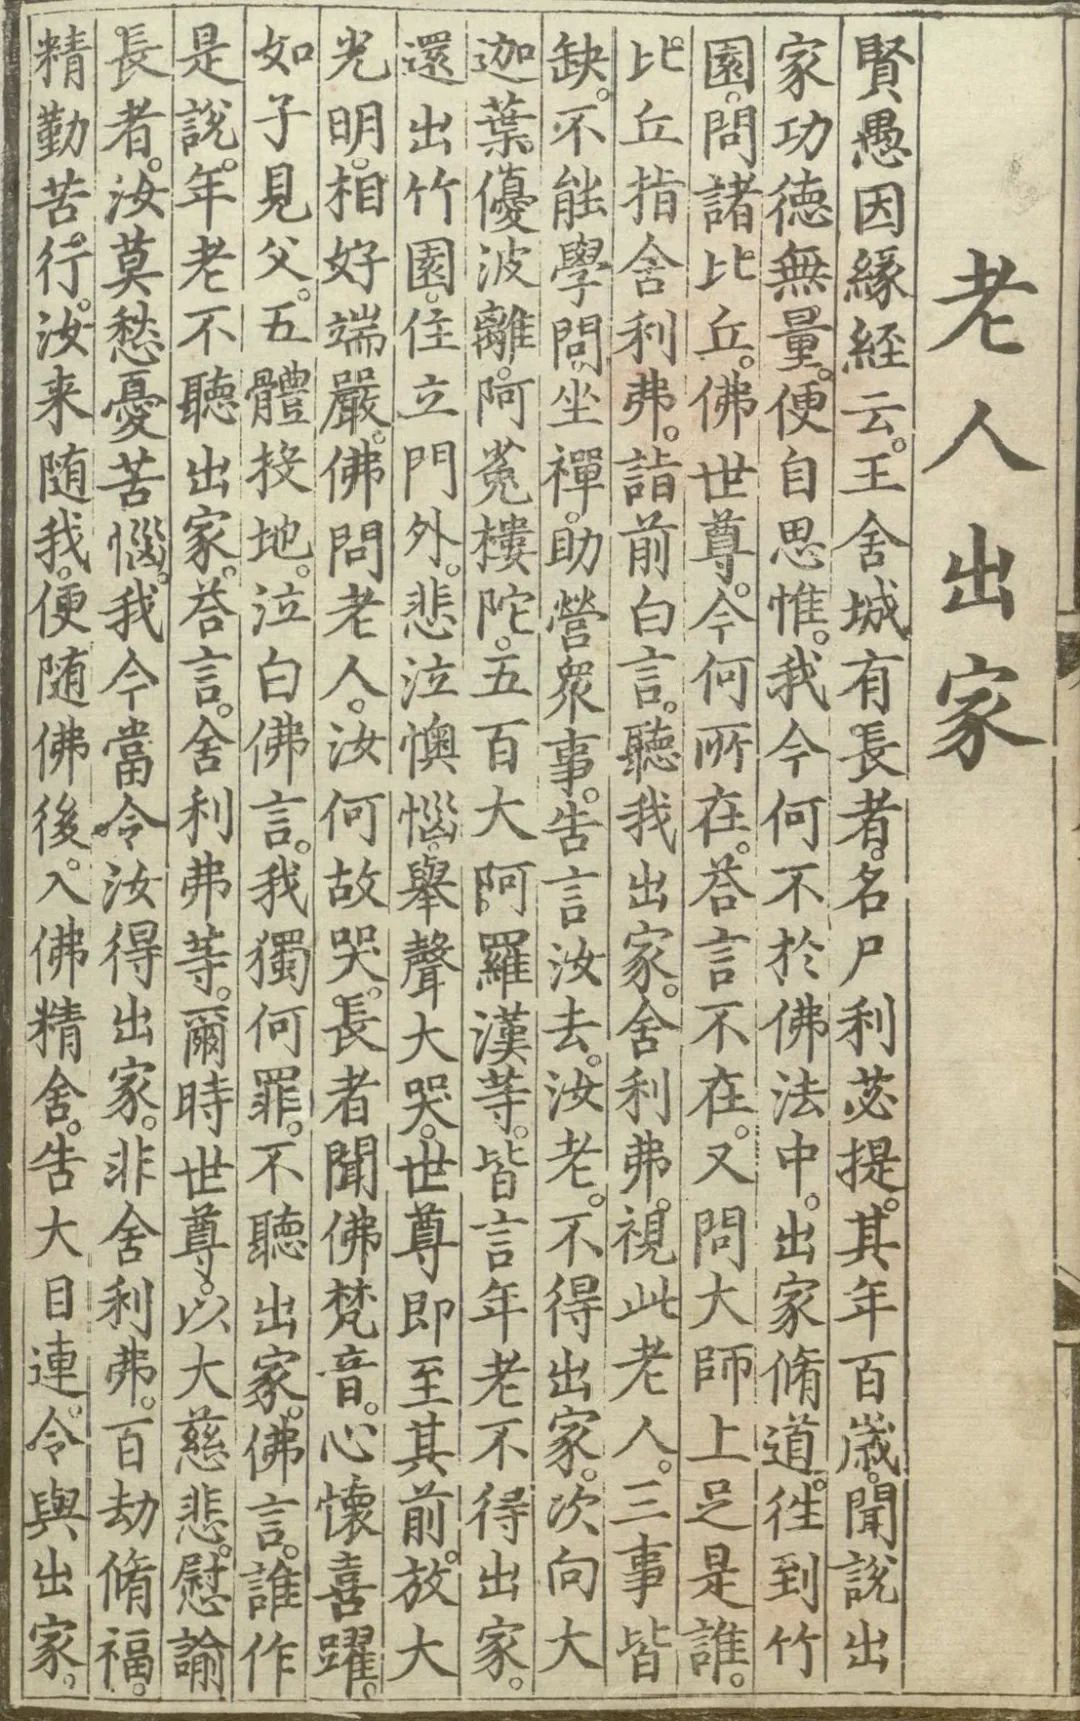 老人出家
賢愚因緣経云。王舍城有長者。名尸利苾提。其年百歲。聞說出
家功德無量。便自思惟。我今何不於佛法中。出家脩道。徃到竹
園。問諸比丘。佛世尊。今何所在。荅言不在。又問大師上足是誰。
比丘指舍利弗。詣前白言。聽我出家。舍利弗。視此老人。三事皆
缺。不能學問。坐禪。助營衆事。告言汝去。汝老。不得出家。次向大
迦葉。優波離。阿㝹樓陀。五百大阿羅漢等。皆言年老不得出家。
還出竹園。住立門外。悲泣懊惱。舉聲大哭。世尊即至其前。放大
光明。相好端嚴。佛問老人。汝何故哭。長者聞佛梵音。心懷喜躍。
如子見父。五體投地。泣白佛言。我獨何罪。不聽出家。佛言。誰作
是說。年老不聽出家。荅言。舍利弗等。爾時世尊。以大慈悲。慰諭
長者。汝莫愁憂苦惱。我今當令汝得出家。非舍利弗。百劫脩福。
精勤苦行。汝来随我。便随佛後。入佛精舍。告大目連。令與出家。